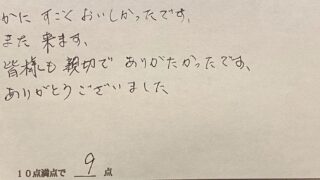 かに すごくおいしかったです。
また 来ます。
皆様も 親切で ありがたかったです。
ありがとうございました
10点満点で 9 点